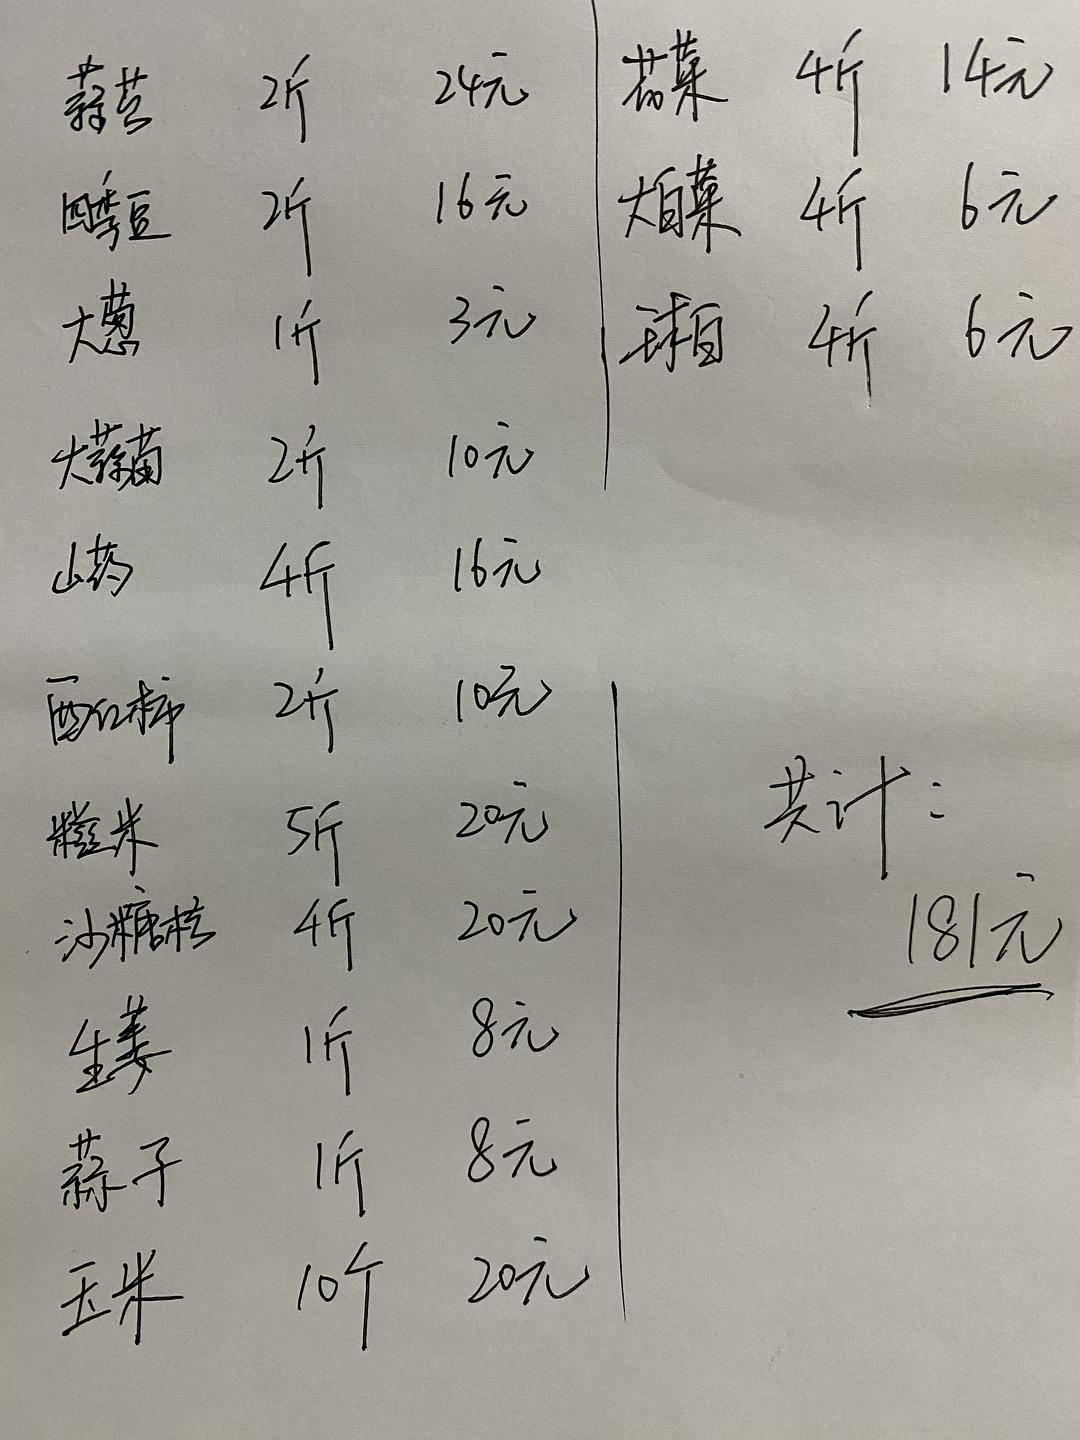 蒜苔 2斤 24元
四季豆 2斤 16元
大葱 1斤 3元
大蒜苗 2斤 10元
山药 4斤 16元
西红柿 2斤 10元
糙米 5斤 20元
沙糖桔 4斤 20元
生姜 1斤 8元
蒜子 1斤 8元
玉米 10个 20元
花菜 4斤 14元
大白菜 4斤 6元
球白 4斤 6元
共计：
181元